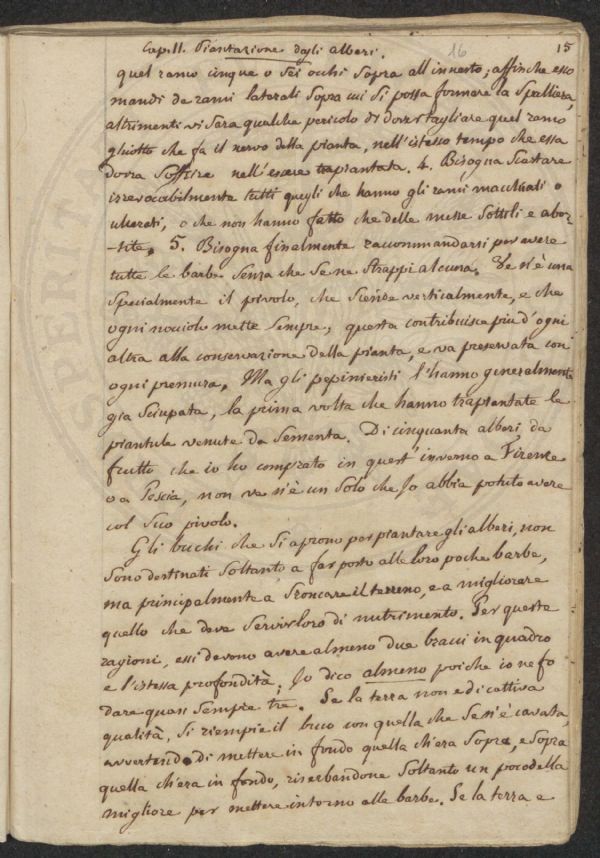 Cap. II. Piantazione degli alberi. 16 15
quel ramo cinque o sei occhi sopra all'innesto; affinche esso
mandi de rami laterali sopra cui si possa formare la spalliera,
altrimenti vi sara qualche pericolo di dover tagliare quel ramo
ghiotto che fa il nervo della pianta, nell'istesso tempo che essa
dovra soffrire nell'essere trapiantata. 4. Bisogna scartare
irrevocabilmente tutti quegli che hanno gli rami macchiati o
ulcerati, o che non hanno fatto che delle messe sottoli e abor-
-tite. 5. Bisogna finalmente raccommandarsi per avere
tutte le barbe senza che se ne strappi alcuna. Ve n'è una
specialmente il pivolo, che scende verticalmente, e che
ogni nocciolo mette sempre, questa contribuisce piu d'ogni
altra alla conservazione della pianta, e va preservata con
ogni premura. Ma gli pepinieristi l'hanno generalmente
gia sciupata, la prima volta che hanno trapiantate le
piantule venute da sementa. Di cinquanta alberi da
frutto che io ho comprato in quest'inverno a Firenze
o a Pescia, non ve n'è un solo che Jo abbia potuto avere
col suo pivolo.
Gli buchi che si aprono per piantare gli alberi, non
sono destinati soltanto a far posto alle loro poche barbe,
ma principalmente a sroncare il terreno, e a migliorare
quello che deve servir loro di nutrimento. Per queste
ragioni, essi devono avere almeno due bracci in quadro
e l'istessa profondità; Jo dico almeno poiche io ne fo
dare quasi sempre tre. Se la terra non e di cattiva
qualità, si riempie il buco con quella che se n'è cavata,
avvertendo di mettere in fondo quella ch'era sopra, e sopra
quella ch'era in fondo, riserbandone soltanto un poco della
migliore per mettere intorno alle barbe. Se la terra e